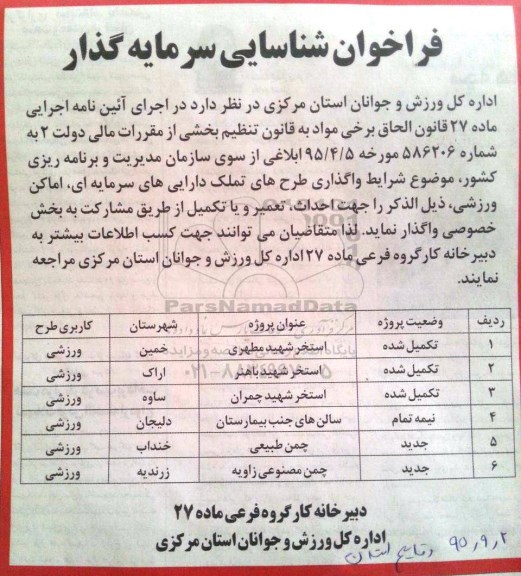 فراخوان شناسایی سرمایه گذار
اداره کل ورزش و جوانان استان مرکزی در نظر دارد در اجرای آئین نامه اجرایی
ماده ۲۷ قانون الحاق برخی مواد به قانون تنظیم بخشی از مقررات مالی دولت ۲ به
شماره ۵۸۶۲۰۶ مورخه ۹۵/۴/۵ ابلاغی از سوی سازمان مدیریت و برنامه ریزی
کشور، موضوع شرایط واگذاری طرح های تملک دارایی های سرمایه ای، اماکن
ورزشی، ذیل الذکر را جهت احداث، تعمیر و یا تکمیل از طریق مشارکت به بخش
خصوصی واگذار نماید. لذا متقاضیان می توانند جهت کسب اطلاعات بیشتر به
دبیرخانه کارگروه فرعی ماده ۲۷ اداره کل ورزش و جوانان استان مرکزی مراجعه
نمایند.
ParsNamadData
ردیف وضعیت پروژه عنوان پروژه شهرستان کاربری طرح
۱ تکمیل شده استخر شهید مطهری خمین ورزشی
۲ تکمیل شده استخر شهید باهنر اراک ورزشی
۳ تکمیل شده استخر شهید چمران ساوه ورزشی
۴ نیمه تمام سالن های جنب بیمارستان دلیجان ورزشی
۵ جدید چمن طبیعی خنداب ورزشی
۶ جدید چمن مصنوعی زاویه زرندیه ورزشی
دبیرخانه کارگروه فرعی ماده ۲۷
اداره کل ورزش و جوانان استان مرکزی